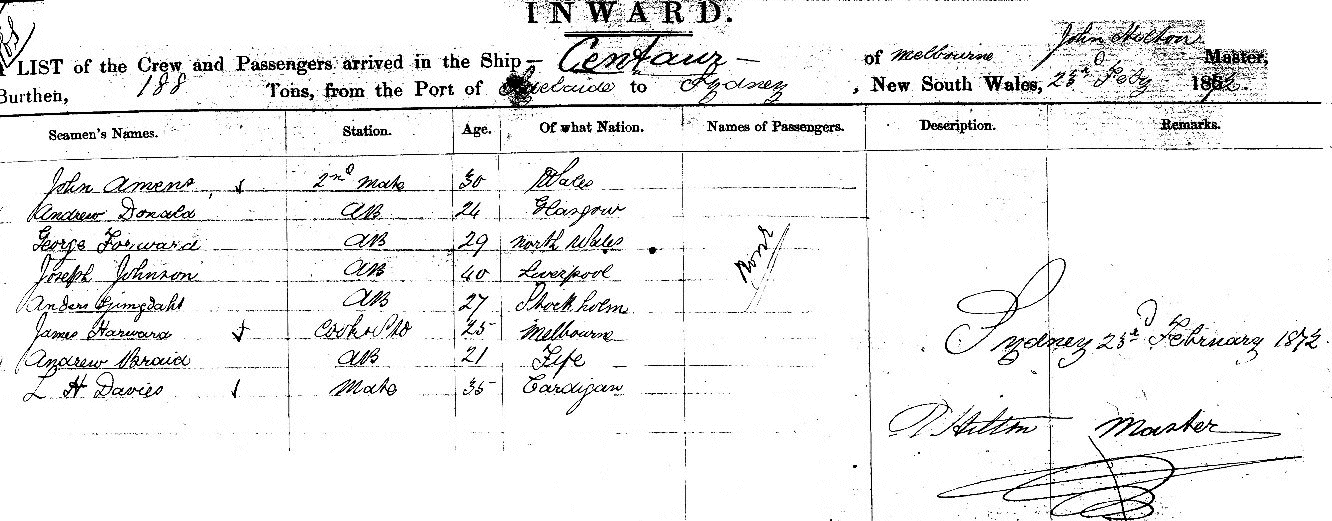 INWARD.
LIST of the Crew and Passengers arrived in the Ship Centaur of Melbourne John Hilton Master,
Burthen, 188 Tons, from the Port of Adelaide to Sydney, New South Wales, 23rd Feby 1872.
Seamen's Names. Station. Age. Of what Nation. Names of Passengers. Description. Remarks.
John Amens 2nd Mate 30 Wales
Andrew Donald AB 24 Glasgow
George Forward AB 29 North Wales
Joseph Johnson AB 40 Liverpool None
Anders AB 27 Stockholm
James Harward Cook & Std 25 Melbourne
Sydney 23rd February 1872
Andrew Braid AB 21 Fife
L H Davies Mate 35 Cardigan
Hilton Master